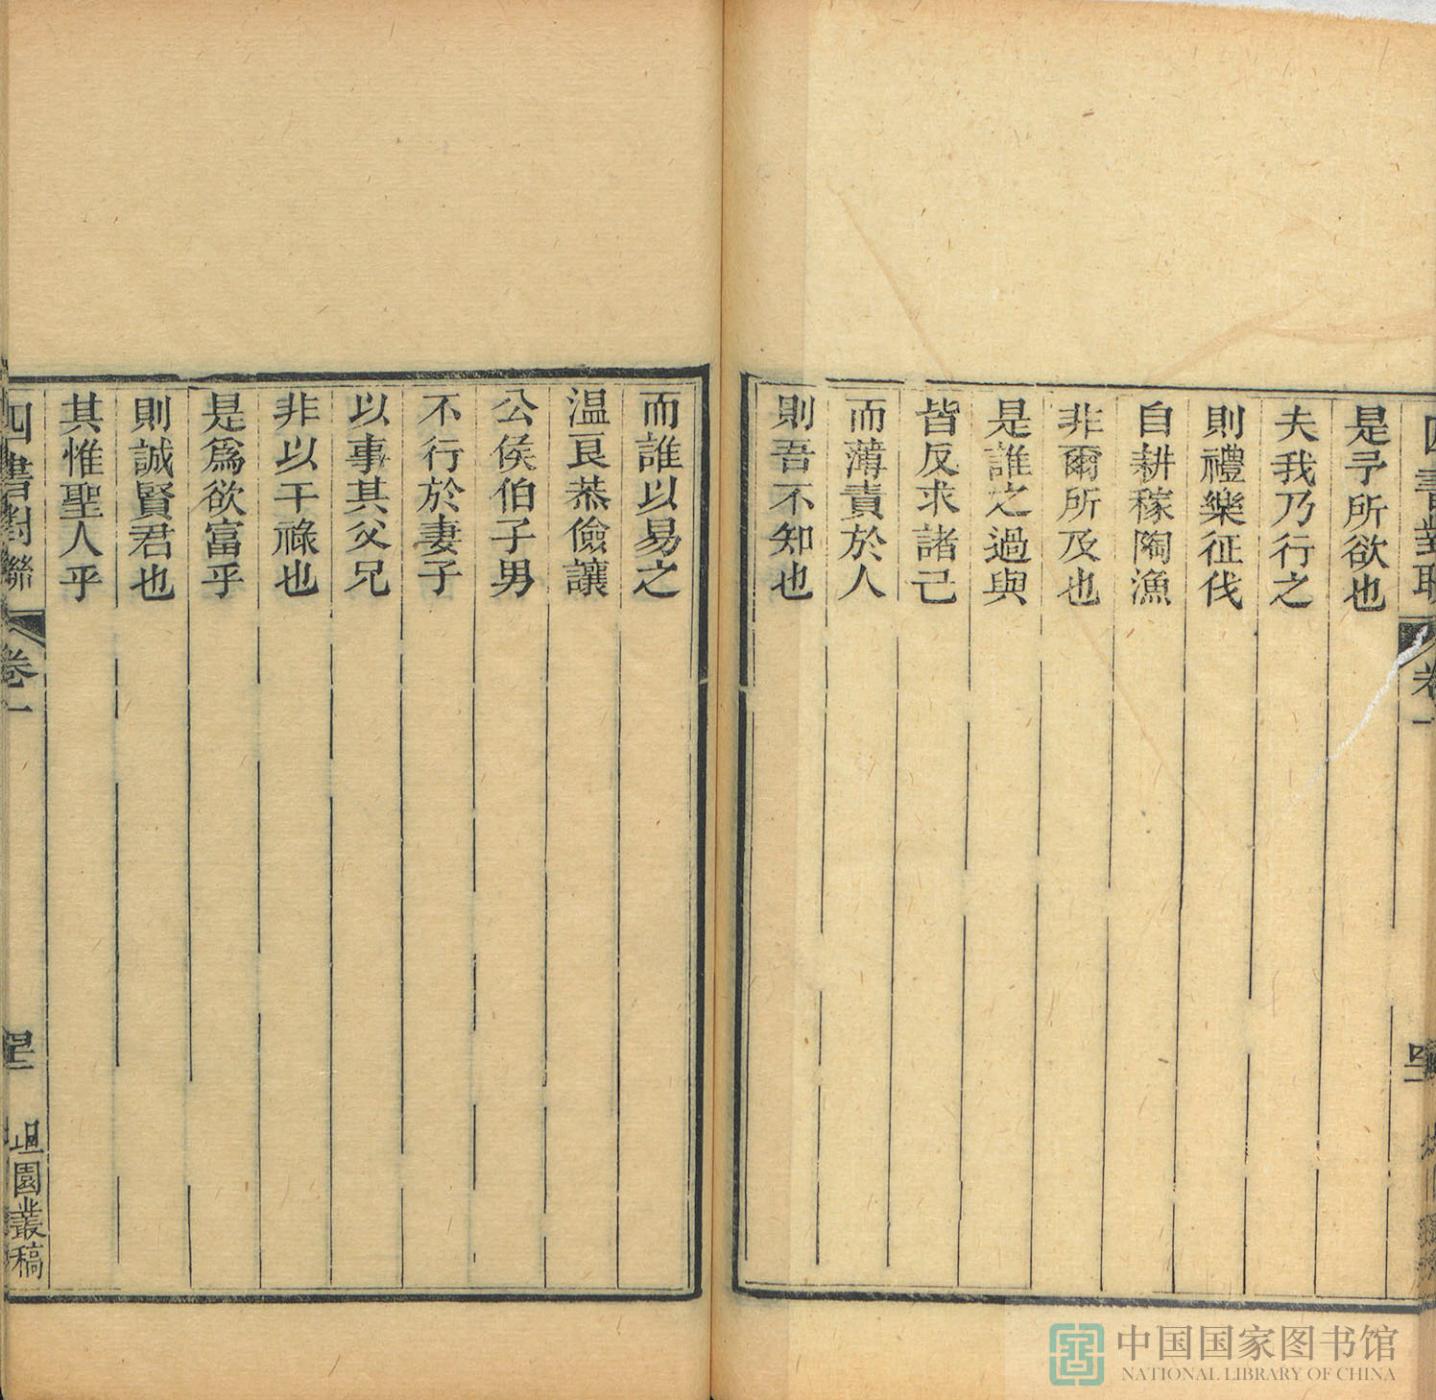 四書對聯 卷一
是予所欲也
夫我乃行之
則禮樂征伐
自耕稼陶漁
非爾所及也
是誰之過與
皆反求諸己
而薄責於人
則吾不知也
而誰以易之
温良恭儉讓
公侯伯子男
不行於妻子
以事其父兄
非以干祿也
是爲欲富乎
則誠賢君也
其惟聖人乎
四書對聯 卷一 園叢稿
中国国家图书馆
NATIONAL LIBRARY OF CHINA